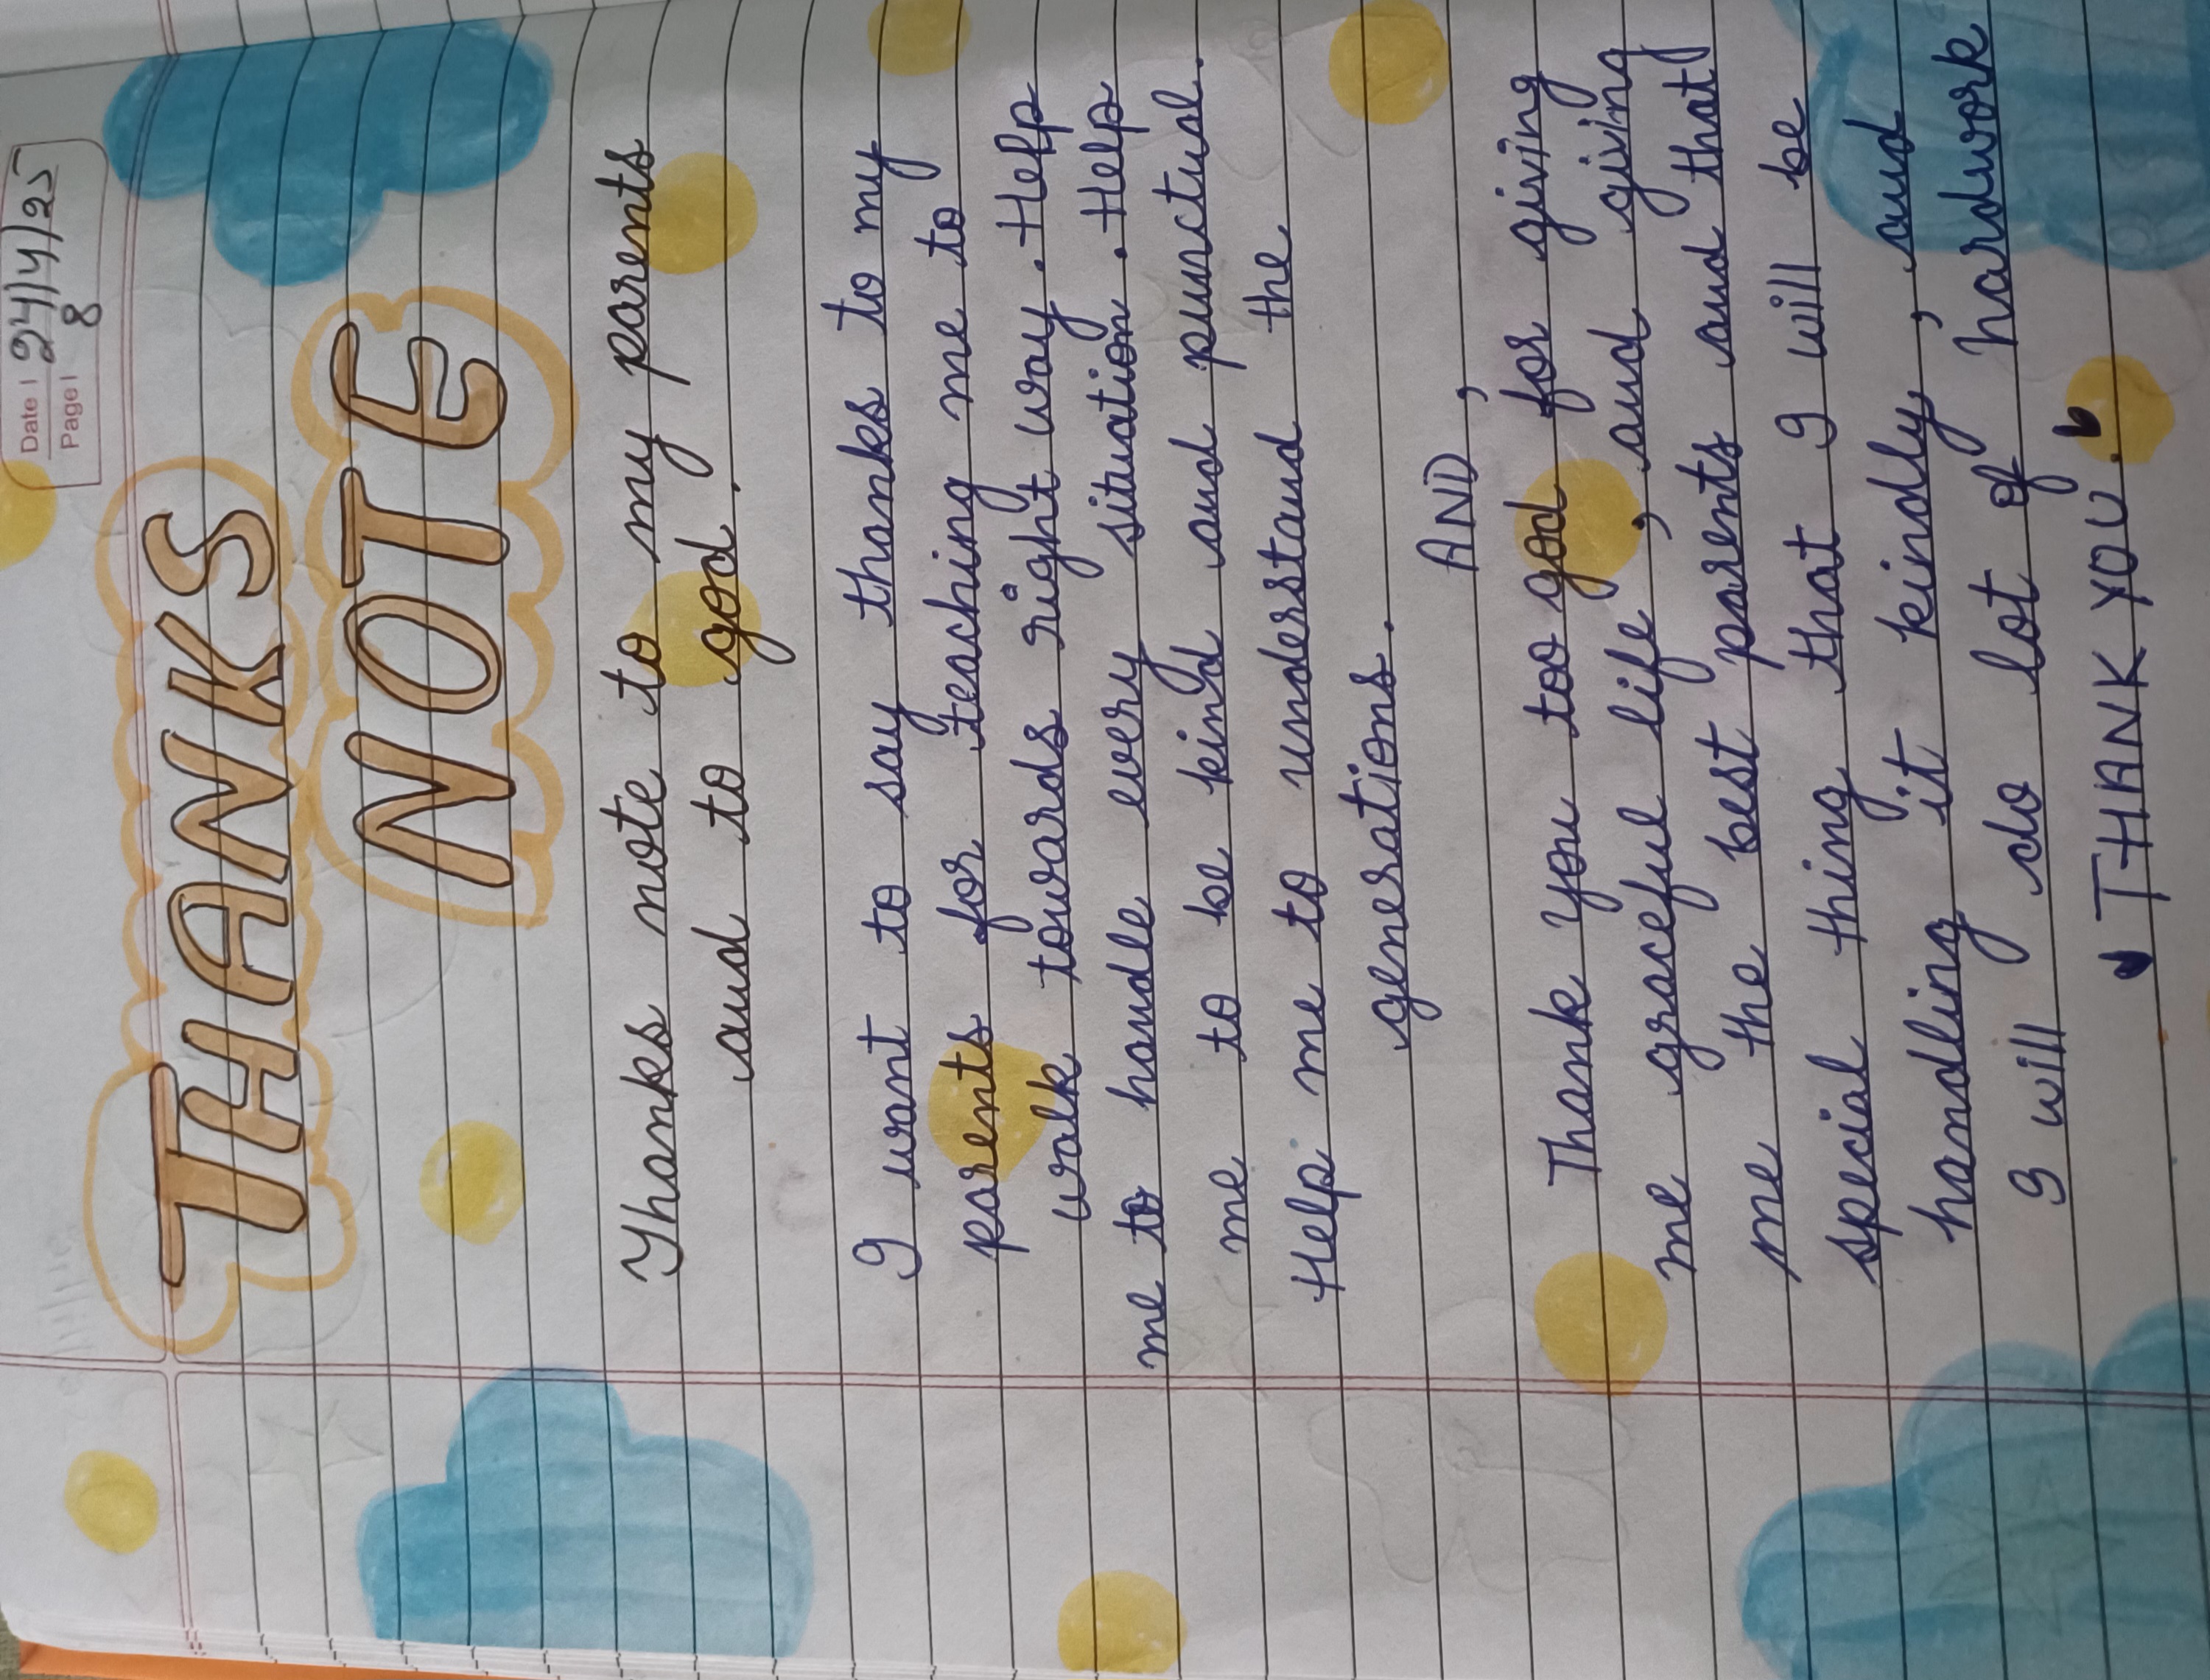 Date | 24/4/25
Page | 8
THANKS
NOTE
Thanks note to my parents
and to god.
I want to say thanks to my
parents for teaching me to
walk towards right way. Help
me to handle every situation. Help
me to be kind and punctual.
Help me to understand the
generations.
AND,
Thank you too god for giving
me graceful life, and giving
me the best parents and that
special thing that I will be
handling it kindly, and
I will do lot of hardwork
THANK YOU.